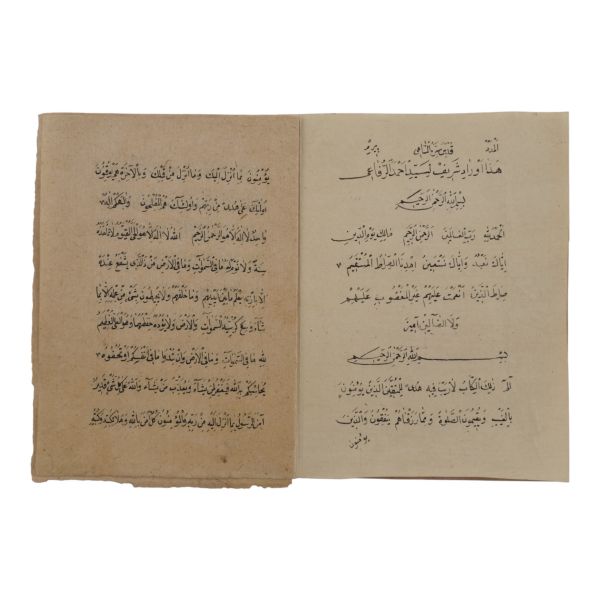 المدد قدس سره السامي
هذا اوراد شريف لسيد احمد الرفاعي
بسم الله الرحمن الرحيم
الحمد لله رب العالمين الرحمن الرحيم مالك يوم الدين
اياك نعبد واياك نستعين اهدنا الصراط المستقيم ٧
صراط الذين انعمت عليهم غير المغضوب عليهم
ولا الضالين آمين
بسم الله الرحمن الرحيم
الم ذلك الكتاب لا ريب فيه هدى للمتقين الذين يؤمنون
بالغيب ويقيمون الصلوة ومما رزقناهم ينفقون والذين
يؤمنون
يؤمنون بما انزل اليك وما انزل من قبلك وبالآخرة هم يوقنون
اولئك على هدى من ربهم واولئك هم المفلحون والهكم اله
واحد لا اله الا هو الرحمن الرحيم الله لا اله الا هو الحي القيوم لا تأخذه
سنة ولا نوم له ما في السموات وما في الارض من ذا الذي يشفع عنده
الا باذنه يعلم ما بين ايديهم وما خلفهم ولا يحيطون بشئ من علمه الا بما
شاء وسع كرسيه السموات والارض ولا يؤده حفظهما وهو العلي العظيم
لله ما في السموات وما في الارض وان تبدوا ما في انفسكم او تخفوه
يحاسبكم به الله فيغفر لمن يشاء ويعذب من يشاء والله على كل شئ قدير
آمن الرسول بما انزل اليه من ربه والمؤمنون كل آمن بالله وملائكته وكتبه